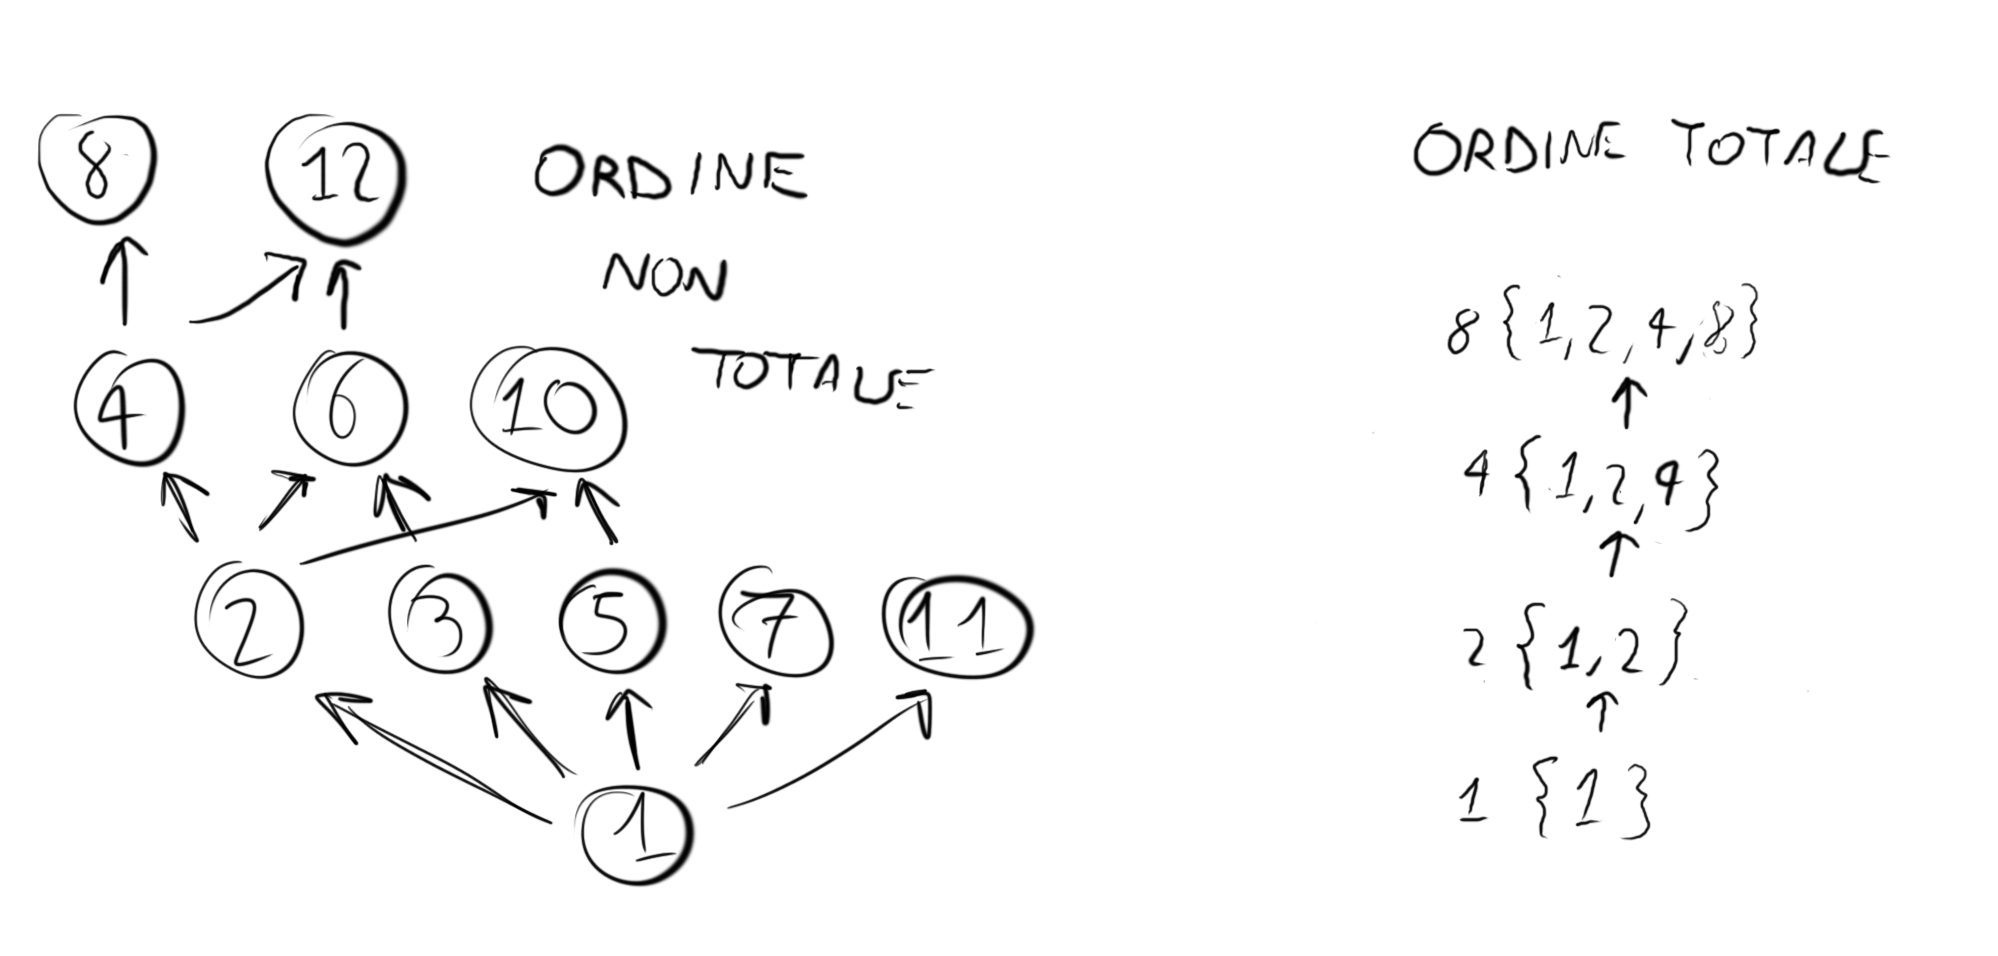 8 12 ORDINE
NON
TOTALE
4 6 10
2 3 5 7 11
1
ORDINE TOTALE
8 {1,2,4,8}
4 {1,2,4}
2 {1,2}
1 {1}